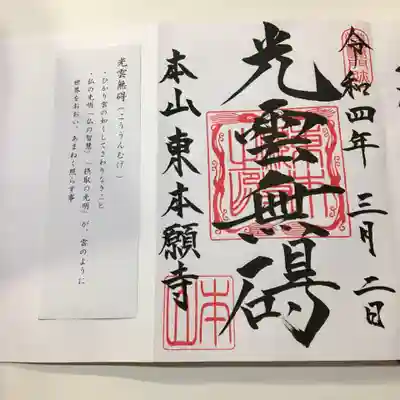 令和四年 三月 二日
光雲無碍
本山東本願寺
本
山
光雲無碍(こううんむげ)
・ひかり雲の如くしてさわりなきこと
・仏の光明「仏の智慧」「摂取の光明」が、雲のように
世界をおおい、あまねく照らす事